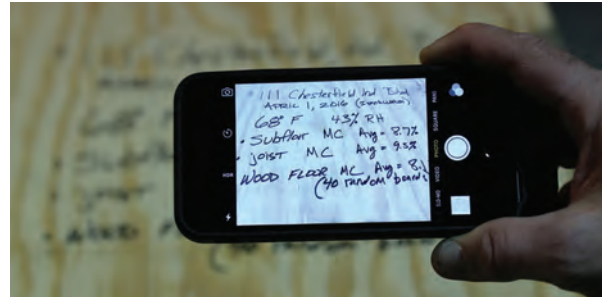 111 Chesterfield Ind
APRIL 1, 2016
68° F 43% RH
• Subfloor MC Avg = 8.7%
• JOIST MC Avg = 9.5%
WOOD FLOOR MC Avg =
(40 random boards
HDR
SLO-MO VIDEO PHOTO SQUARE PANO